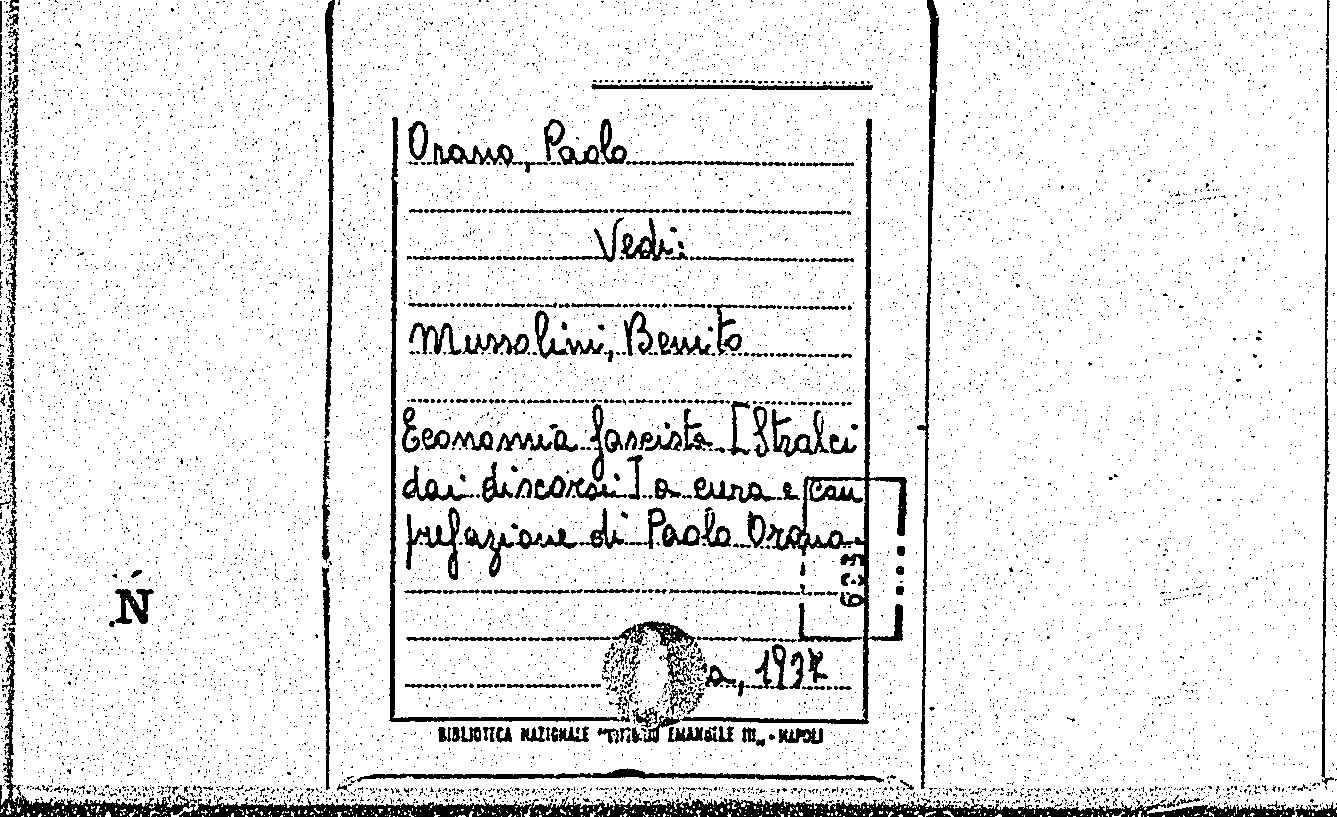 Orano, Paolo
Vedi:
Mussolini, Benito
Economia fascista. [Stralci
dai discorsi] a cura e con
prefazione di Paolo Orano.
a, 1937
N
BIBLIOTECA NAZIONALE "VITTORIO EMANUELE III" - NAPOLI